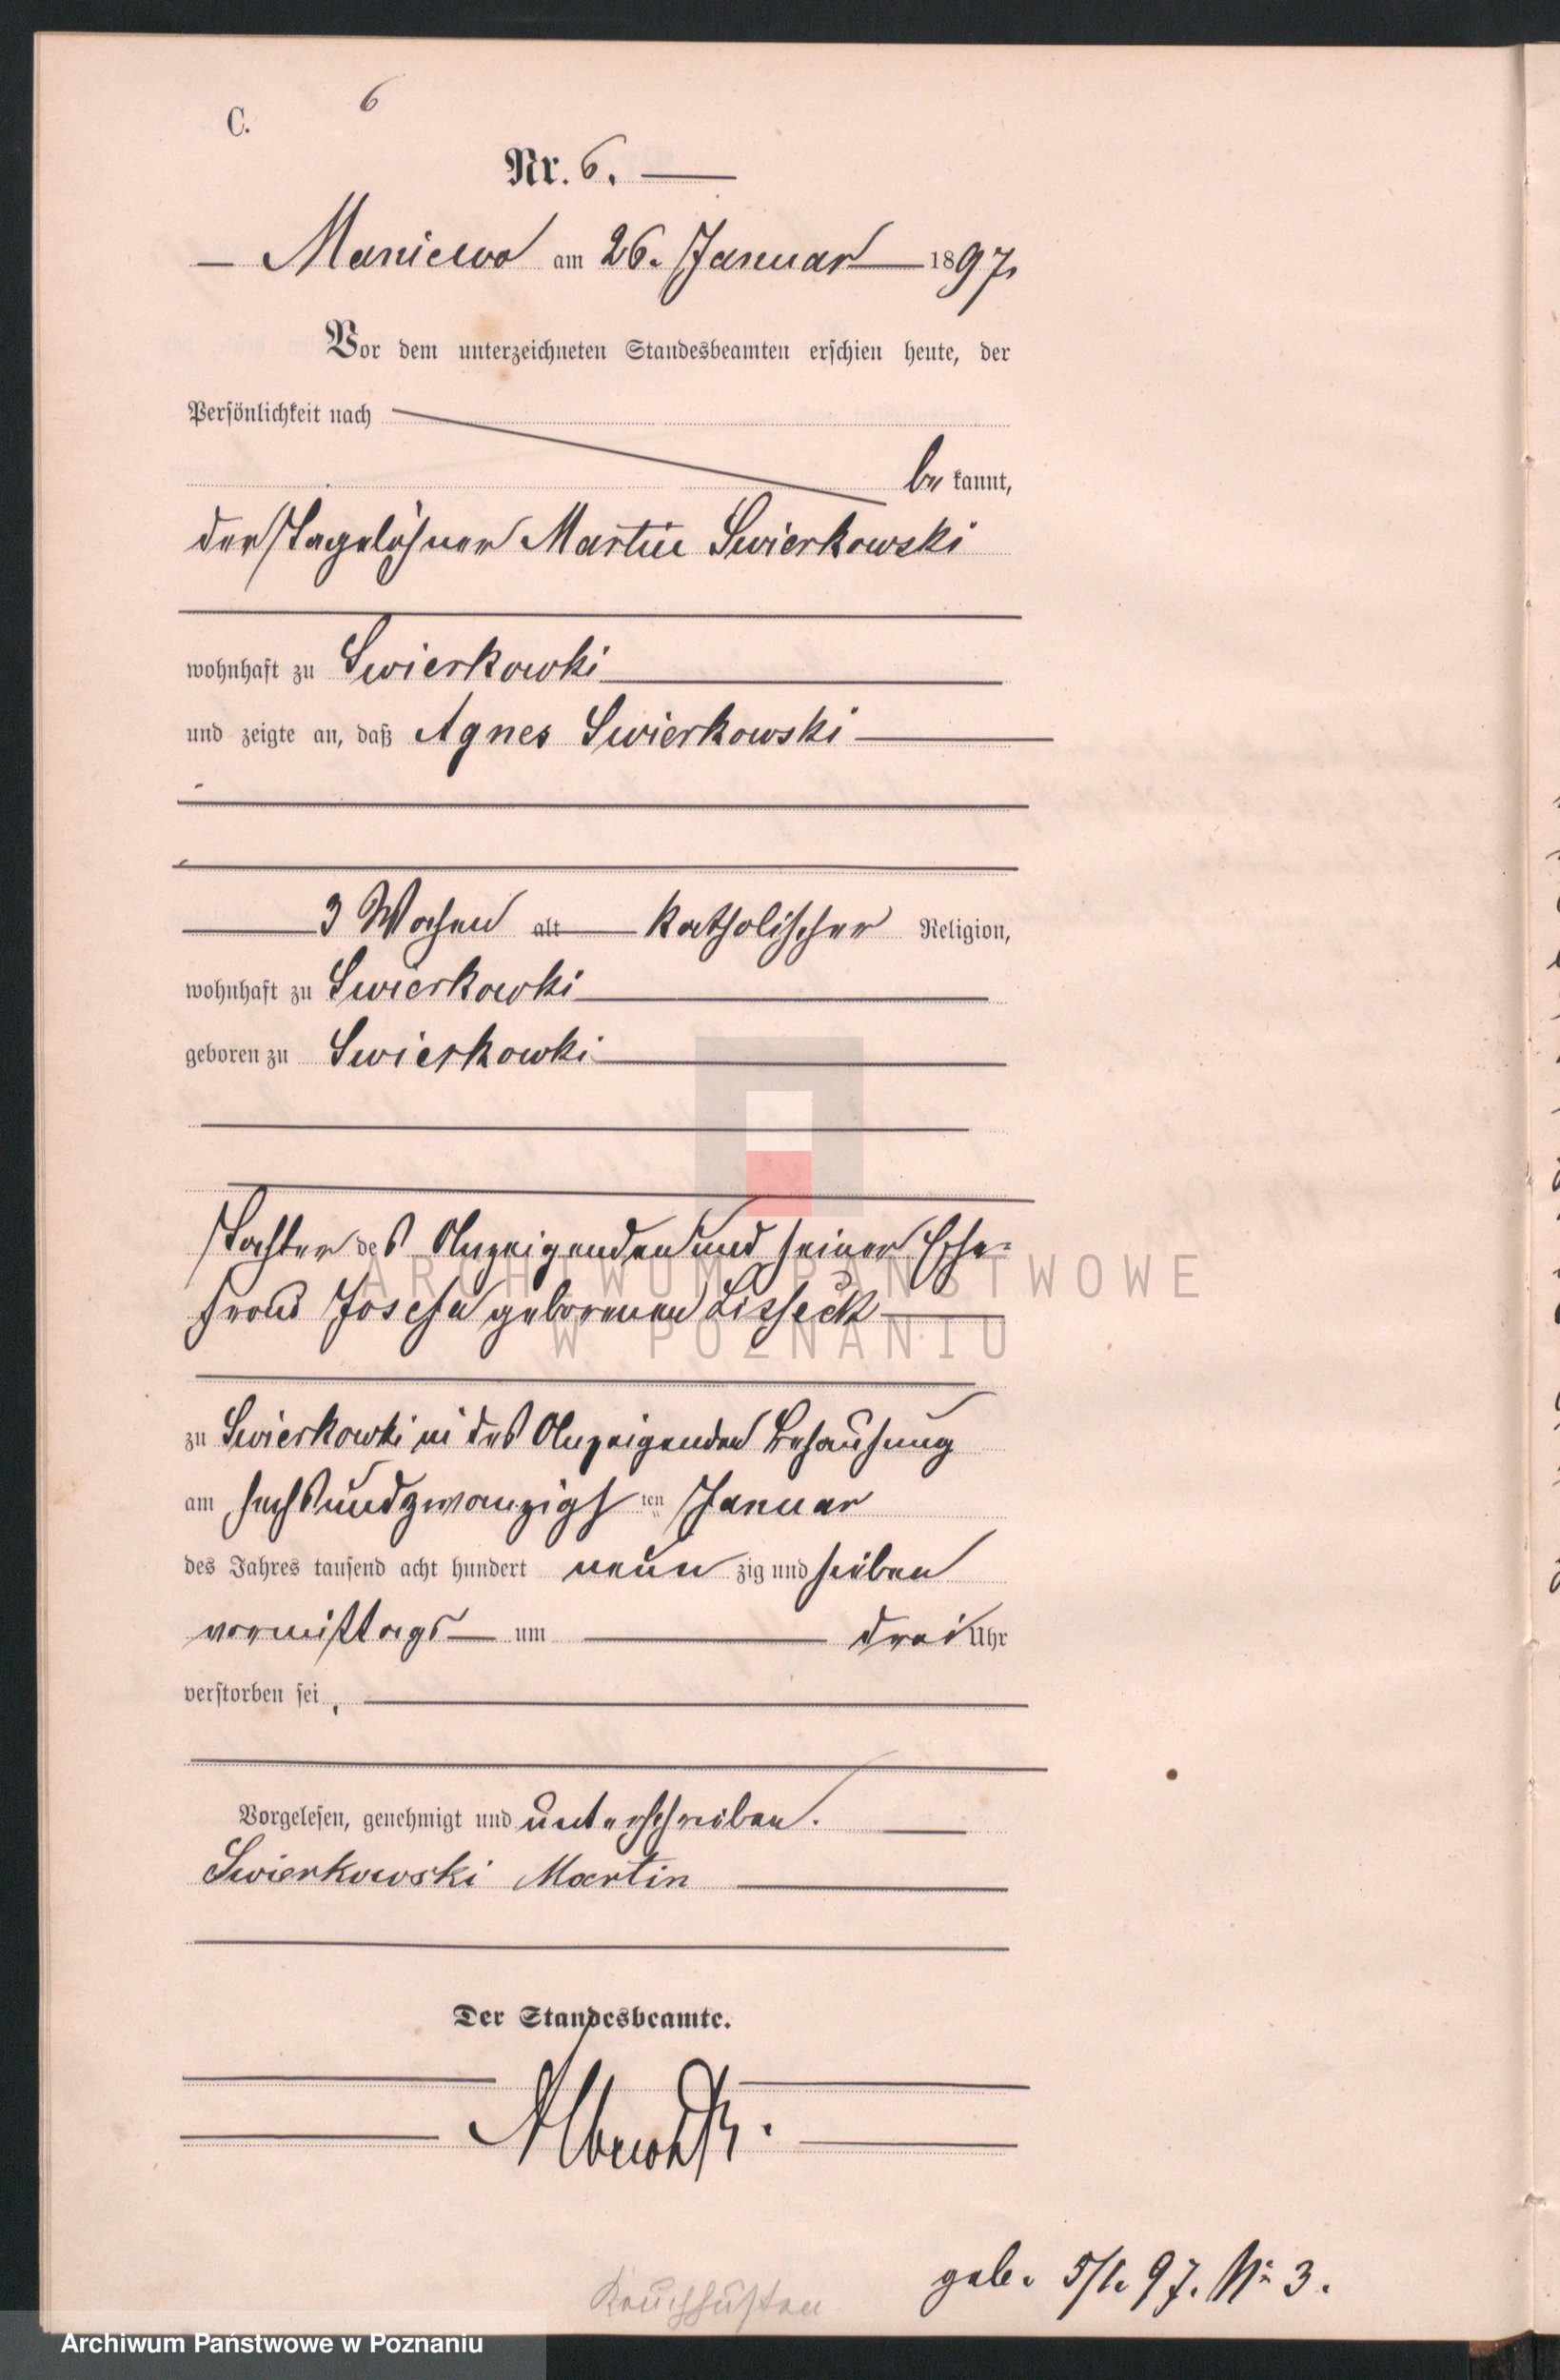 C. 6
Nr. 6.
Maniewo am 26. Januar 1897.
Vor dem unterzeichneten Standesbeamten erschien heute, der
Persönlichkeit nach
be kannt,
der Tagelöhner Martin Swierkowski
wohnhaft zu Swierkowki
und zeigte an, daß Agnes Swierkowski
3 Wochen alt katholischer Religion,
wohnhaft zu Swierkowki
geboren zu Swierkowki
Tochter des Anzeigenden und seiner Ehe-
frau Josefa geborenen Lisseck
ARCHIWUM PAŃSTWOWE
W POZNANIU
zu Swierkowki in des Anzeigenden Behausung
am sechsundzwanzigsten Januar
des Jahres tausend acht hundert neun zig und sieben
vormittags um drei Uhr
verstorben sei.
Vorgelesen, genehmigt und unterschrieben.
Swierkowski Martin
Der Standesbeamte.
Albrecht.
geb. 5/1. 97. No 3.
Keuchhusten
Archiwum Państwowe w Poznaniu